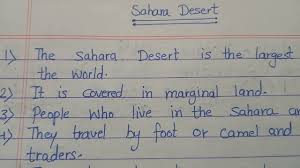 Sahara Desert
1) The Sahara Desert is the largest
the world.
2) It is covered in marginal land.
3) People who live in the Sahara
4) They travel by foot or camel and
traders.